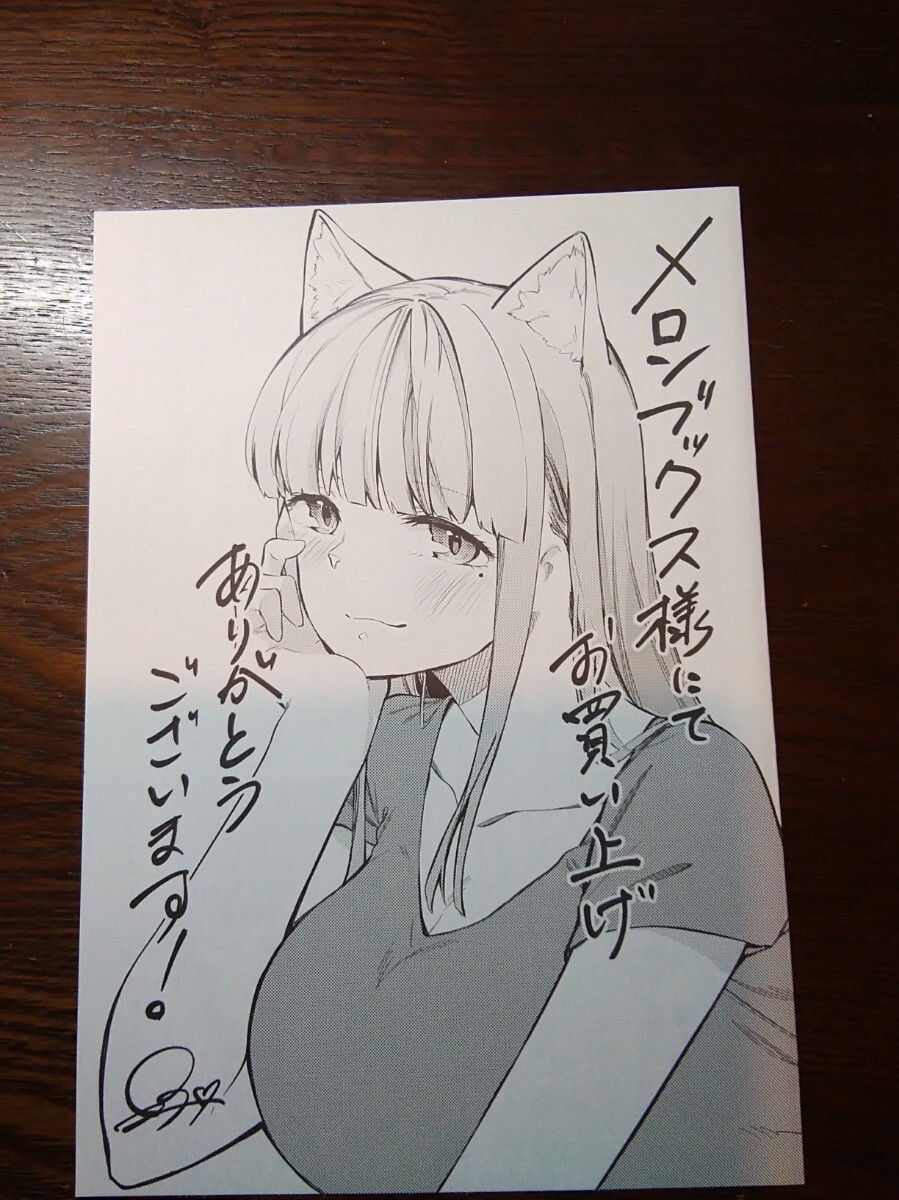 メロンブックス様にて
お買い上げ
ありがとう
ございます!。